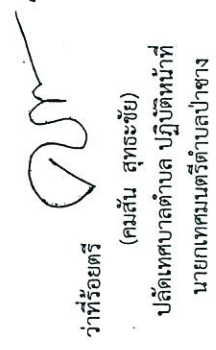 ว่าที่ร้อยตรี
(คมสัน สุทธะชัย)
ปลัดเทศบาลตำบล ปฏิบัติหน้าที่
นายกเทศมนตรีตำบลป่าซาง